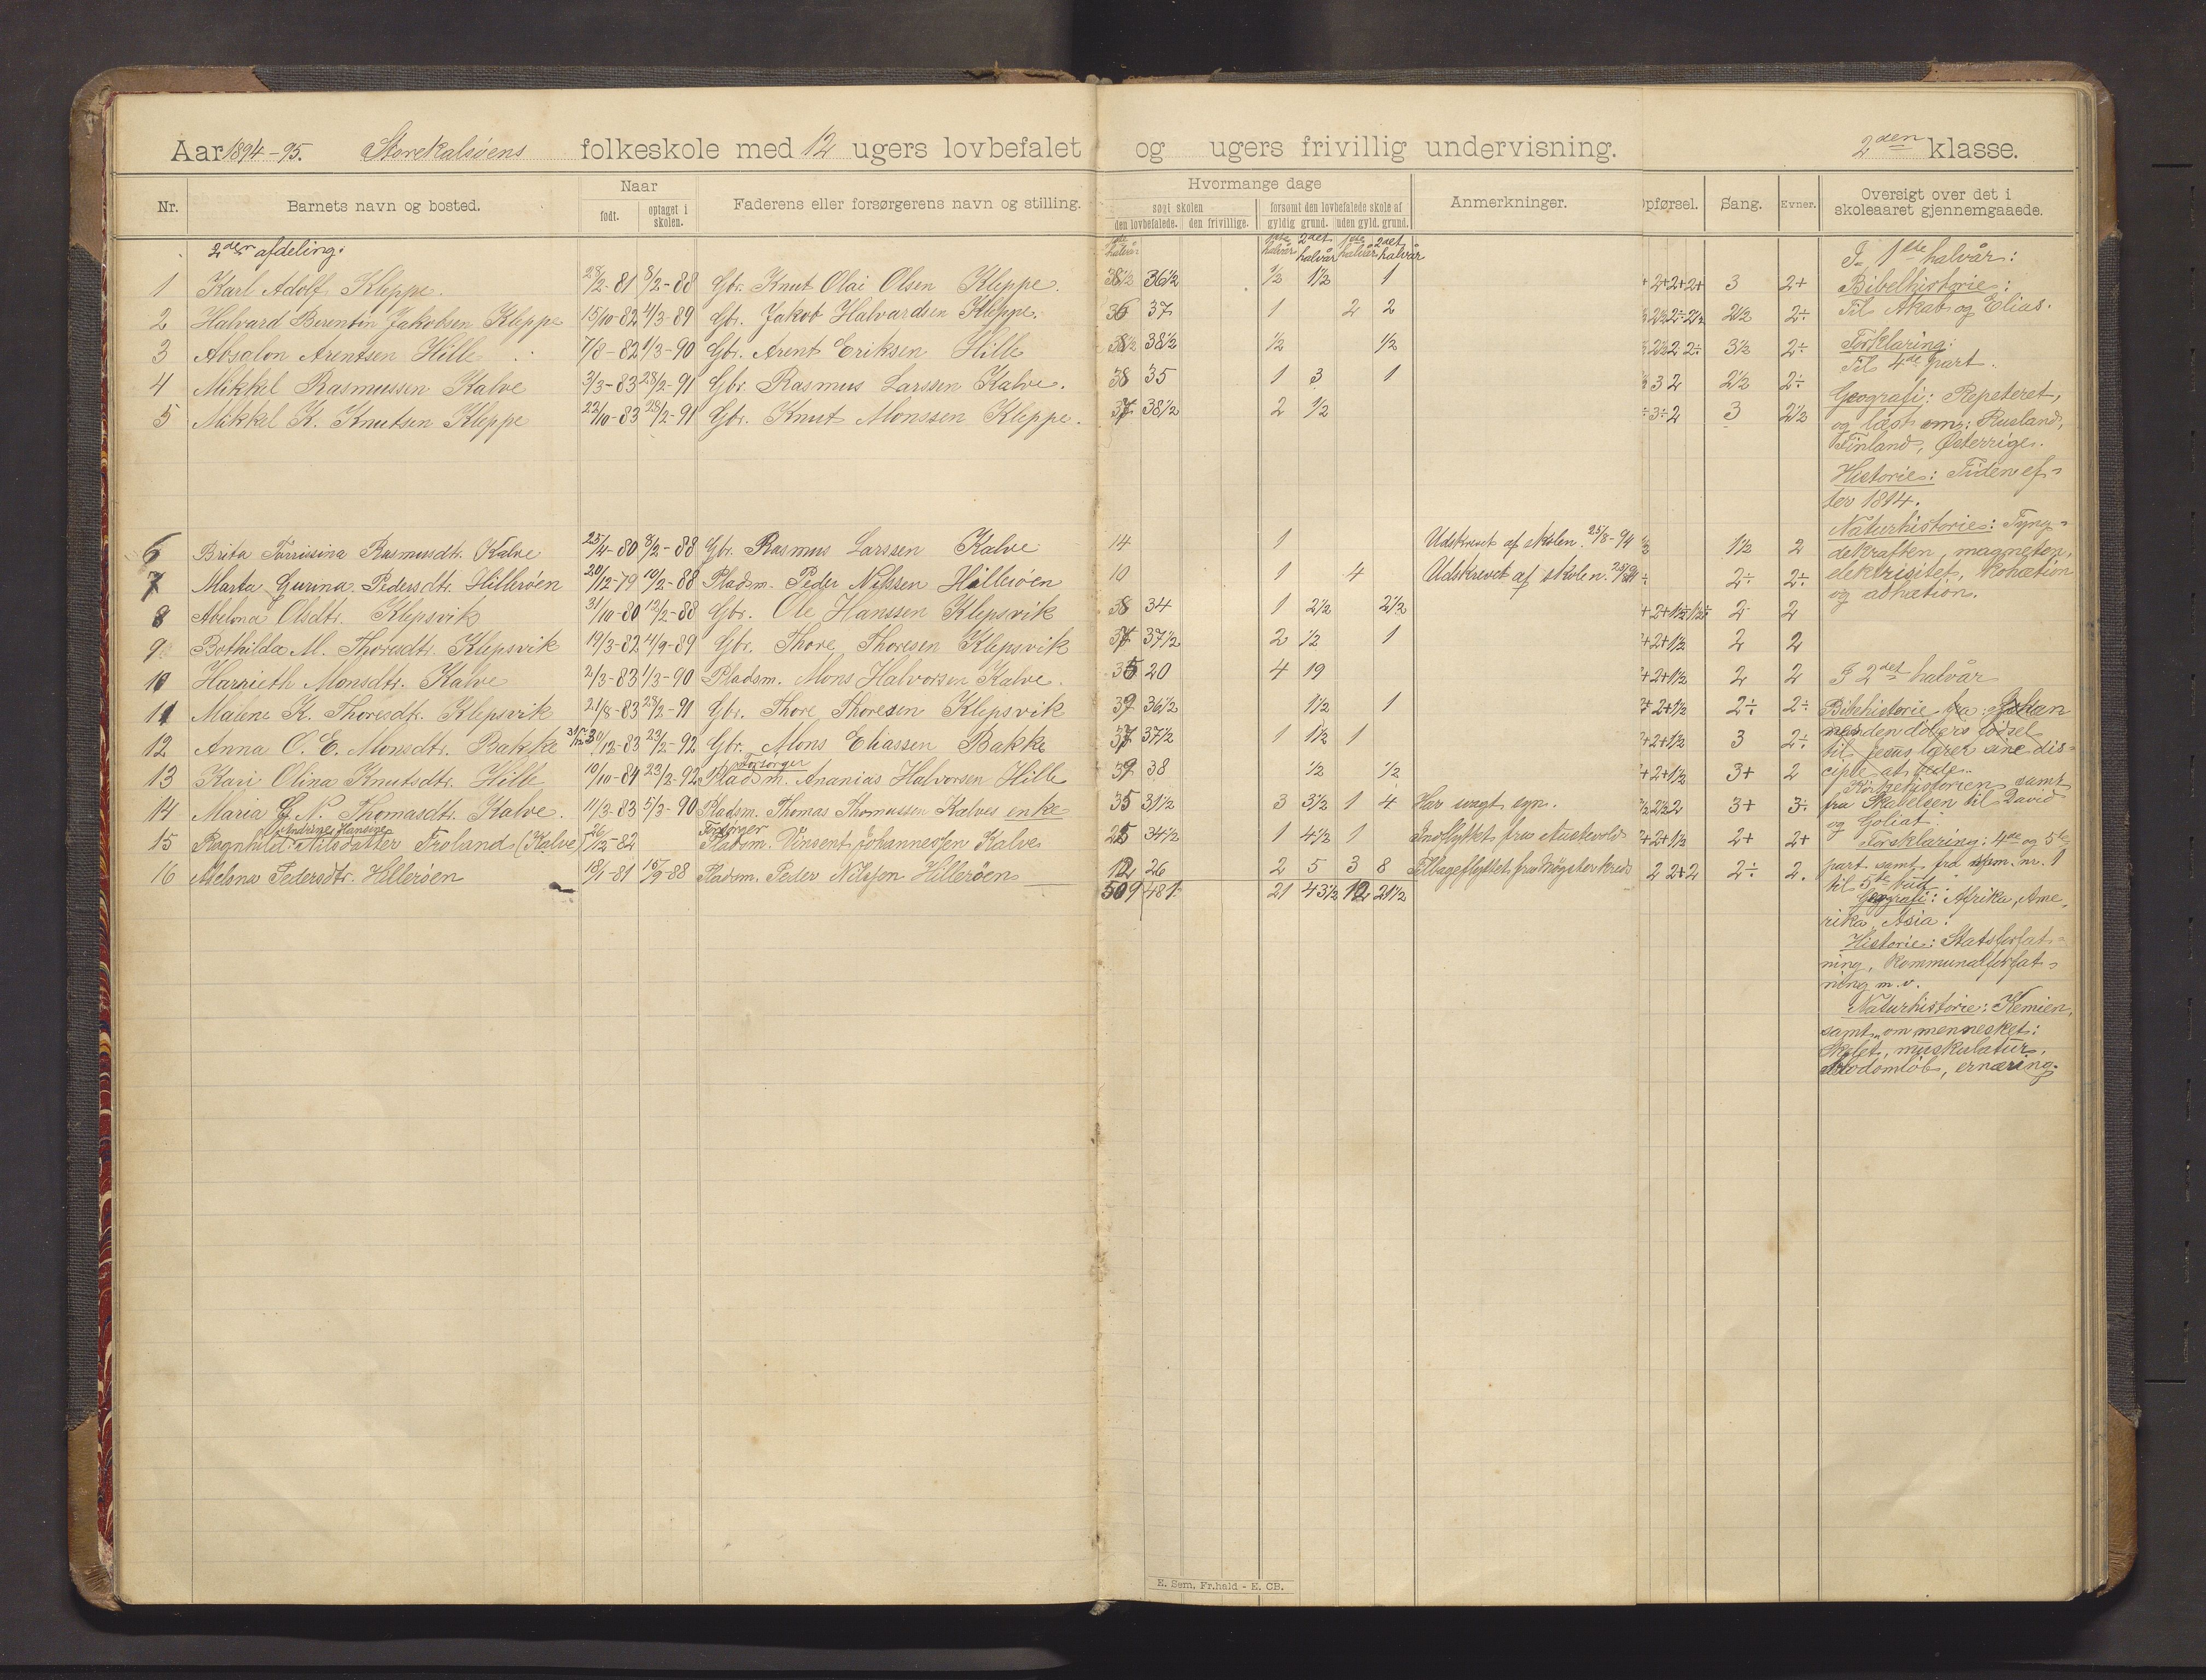 Aar 1894-95. Storekalsøens folkeskole med 12 ugers lovbefalet og ugers frivillig undervisning. 2den klasse.
Nr. Barnets navn og bosted. Naar født. optaget i skolen. Faderens eller forsørgerens navn og stilling. Hvormange dage søgt skolen den lovbefalede. den frivillige. forsømt den lovbefalede skole af gyldig grund. uden gyld. grund. Anmerkninger. Opførsel. Sang. Evner. Oversigt over det i skoleaaret gjennemgaaede.
2den afdeling: 1ste halvår 2det halvår 1ste halvår 2det halvår
1 Karl Adolf Kleppe. 28/2-81 8/2-88 Gbr. Knut Olai Olsen Kleppe. 38½ 36½ ½ 1½ 1 2+2+2+ 3 2+
2 Halvard Berentin Jakobsen Kleppe 15/10-82 4/3-89 Gbr. Jakob Halvardsen Kleppe. 36 37 1 2 2 2½ 2÷
3 Absalon Arentsen Hille 7/8-82 1/3-90 Gbr. Arent Eriksen Hille 38½ 38½ ½ ½ 3½ 2÷
4 Mikkel Rasmussen Kalve 3/3-83 28/2-91 Gbr. Rasmus Larssen Kalve. 38 35 1 3 1 3 2 2½ 2÷
5 Mikkel K. Knutsen Kleppe 22/10-83 28/2-91 Gbr. Knut Monssen Kleppe. 37 38½ 2 ½ ÷3÷2 3 2½
6 Brita Torrisina Rasmusdtr. Kalve 25/4-80 8/2-88 Gbr. Rasmus Larssen Kalve 14 1 Udskrevet af skolen 25/8-94 1½ 2
7 Marta Gurina Pedersdtr. Hillerøen 20/12-79 10/2-88 Pladsm. Peder Nilssen Hillerøen 10 1 4 Udskrevet af skolen 2÷ 2÷
8 Abelona Olsdtr. Klepsvik 31/10-80 12/2-88 Gbr. Ole Hanssen Klepsvik 38 34 1 2½ 2½ 2 2
9 Bothilda M. Thoresdtr. Klepsvik 19/3-82 4/9-89 Gbr. Thore Thoresen Klepsvik 37 37½ 2 ½ 1 +2+1½ 2 2
10 Harrieth Monsdtr. Kalve 2/3-83 1/3-90 Pladsm. Mons Halvorsen Kalve. 35 20 4 19 +2+1½ 2 2
11 Malene K. Thoresdtr. Klepsvik 21/8-83 28/2-91 Gbr. Thore Thoresen Klepsvik 39 36½ 1½ 1 2+1½ 2÷ 2÷
12 Anna O. E. Monsdtr. Bakke /12-83 23/2-92 Gbr. Mons Eliassen Bakke 37 37½ 1 1½ 1 +2+1½ 3 2÷
forsørger
13 Kari Olina Knutsdtr. Hille 10/10-84 23/2-92 Pladsm. Ananias Halvorsen Hille 39 38 ½ ½ +2+1½ 3+ 2
14 Maria G. N. Thomasdtr. Kalve. 11/3-83 5/3-90 Pladsm. Thomas Thomassen Kalves enke 35 31½ 3 3½ 1 4 Har svagt syn. 3+ 3÷
Andrine Hansine Forsørger
15 Ragnhild Nilsdatter Troland (Kalve) 26/12-82 Pladsm. Vinsent Johannessen Kalve 25 34½ 1 4½ 1 Indflyttet fra Austevold +2+1½ 2+ 2+
16 Abelona Pedersdtr. Hillerøen 18/1-81 15/9-88 Pladsm. Peder Nilssen Hillerøen 12 26 2 5 3 8 Tilbageflyttet fra Møgsterkreds 2 2+2 2÷ 2.
509 481 21 43½ 12 21½
I 1ste halvår:
Bibelhistorie:
Til Akab og Elias.
Forklaring:
Til 4de part.
Geografi: Repeteret,
og læst om: Rusland,
Finland, Østerrige.
Historie: Tiden ef-
ter 1814.
Naturhistorie: Tyng-
dekraften, magneten,
elektrisitet, kohætion
og adhætion.
I 2det halvår
Bibelhistorie fra: Johan
nes den døbers fødsel
til Jesus lærer sine dis-
ciple at bede.
Kirkehistorien samt
fra Skabelsen til David
og Goliat.
Forklaring: 4de og 5te
part samt fra spm. nr. 1
til 5te bud.
Geografi: Afrika, Ame-
rika, Asia.
Historie: Statsforfat-
ning, kommunalforfat-
ning m.v.
Naturhistorie: Kemien,
samt om mennesket:
Skelet, muskulatur,
blodomløb, ernæring.
E. Sem, Fr.hald - E. CB.